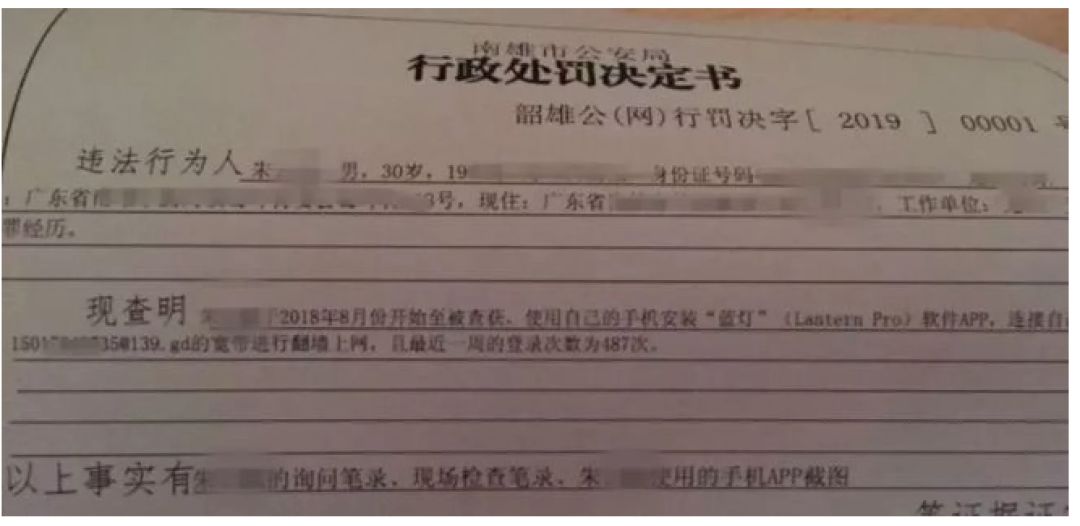 南雄市公安局
行政处罚决定书
韶雄公(网)行罚决字[ 2019 ] 00001 号
违法行为人 朱 男, 30岁, 19 身份证号码
: 广东省 3号, 现住: 广东省 , 工作单位:
罪经历。
现查明 朱 于2018年8月份开始至被查获, 使用自己的手机安装“蓝灯” (Lantern Pro) 软件APP, 连接自
1501 350139.gd的宽带进行翻墙上网, 且最近一周的登录次数为487次。
以上事实有 朱 的询问笔录、现场检查笔录、朱 使用的手机APP截图
等证据证